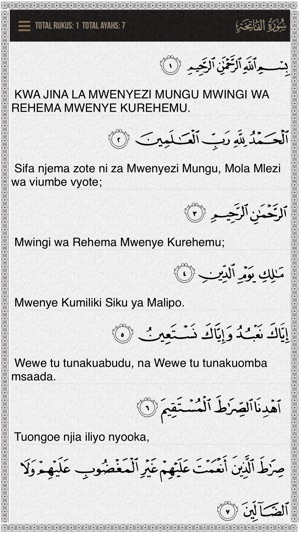 TOTAL RUKUS: 1 TOTAL AYAHS: 7 سُورَةُ الْفَاتِحَةِ
بِسْمِ اللَّهِ الرَّحْمَٰنِ الرَّحِيمِ ١
KWA JINA LA MWENYEZI MUNGU MWINGI WA
REHEMA MWENYE KUREHEMU.
الْحَمْدُ لِلَّهِ رَبِّ الْعَالَمِينَ ٢
Sifa njema zote ni za Mwenyezi Mungu, Mola Mlezi
wa viumbe vyote;
الرَّحْمَٰنِ الرَّحِيمِ ٣
Mwingi wa Rehema Mwenye Kurehemu;
مَالِكِ يَوْمِ الدِّينِ ٤
Mwenye Kumiliki Siku ya Malipo.
إِيَّاكَ نَعْبُدُ وَإِيَّاكَ نَسْتَعِينُ ٥
Wewe tu tunakuabudu, na Wewe tu tunakuomba
msaada.
اهْدِنَا الصِّرَاطَ الْمُسْتَقِيمَ ٦
Tuongoe njia iliyo nyooka,
صِرَاطَ الَّذِينَ أَنْعَمْتَ عَلَيْهِمْ غَيْرِ الْمَغْضُوبِ عَلَيْهِمْ وَلَا
الضَّالِّينَ ٧